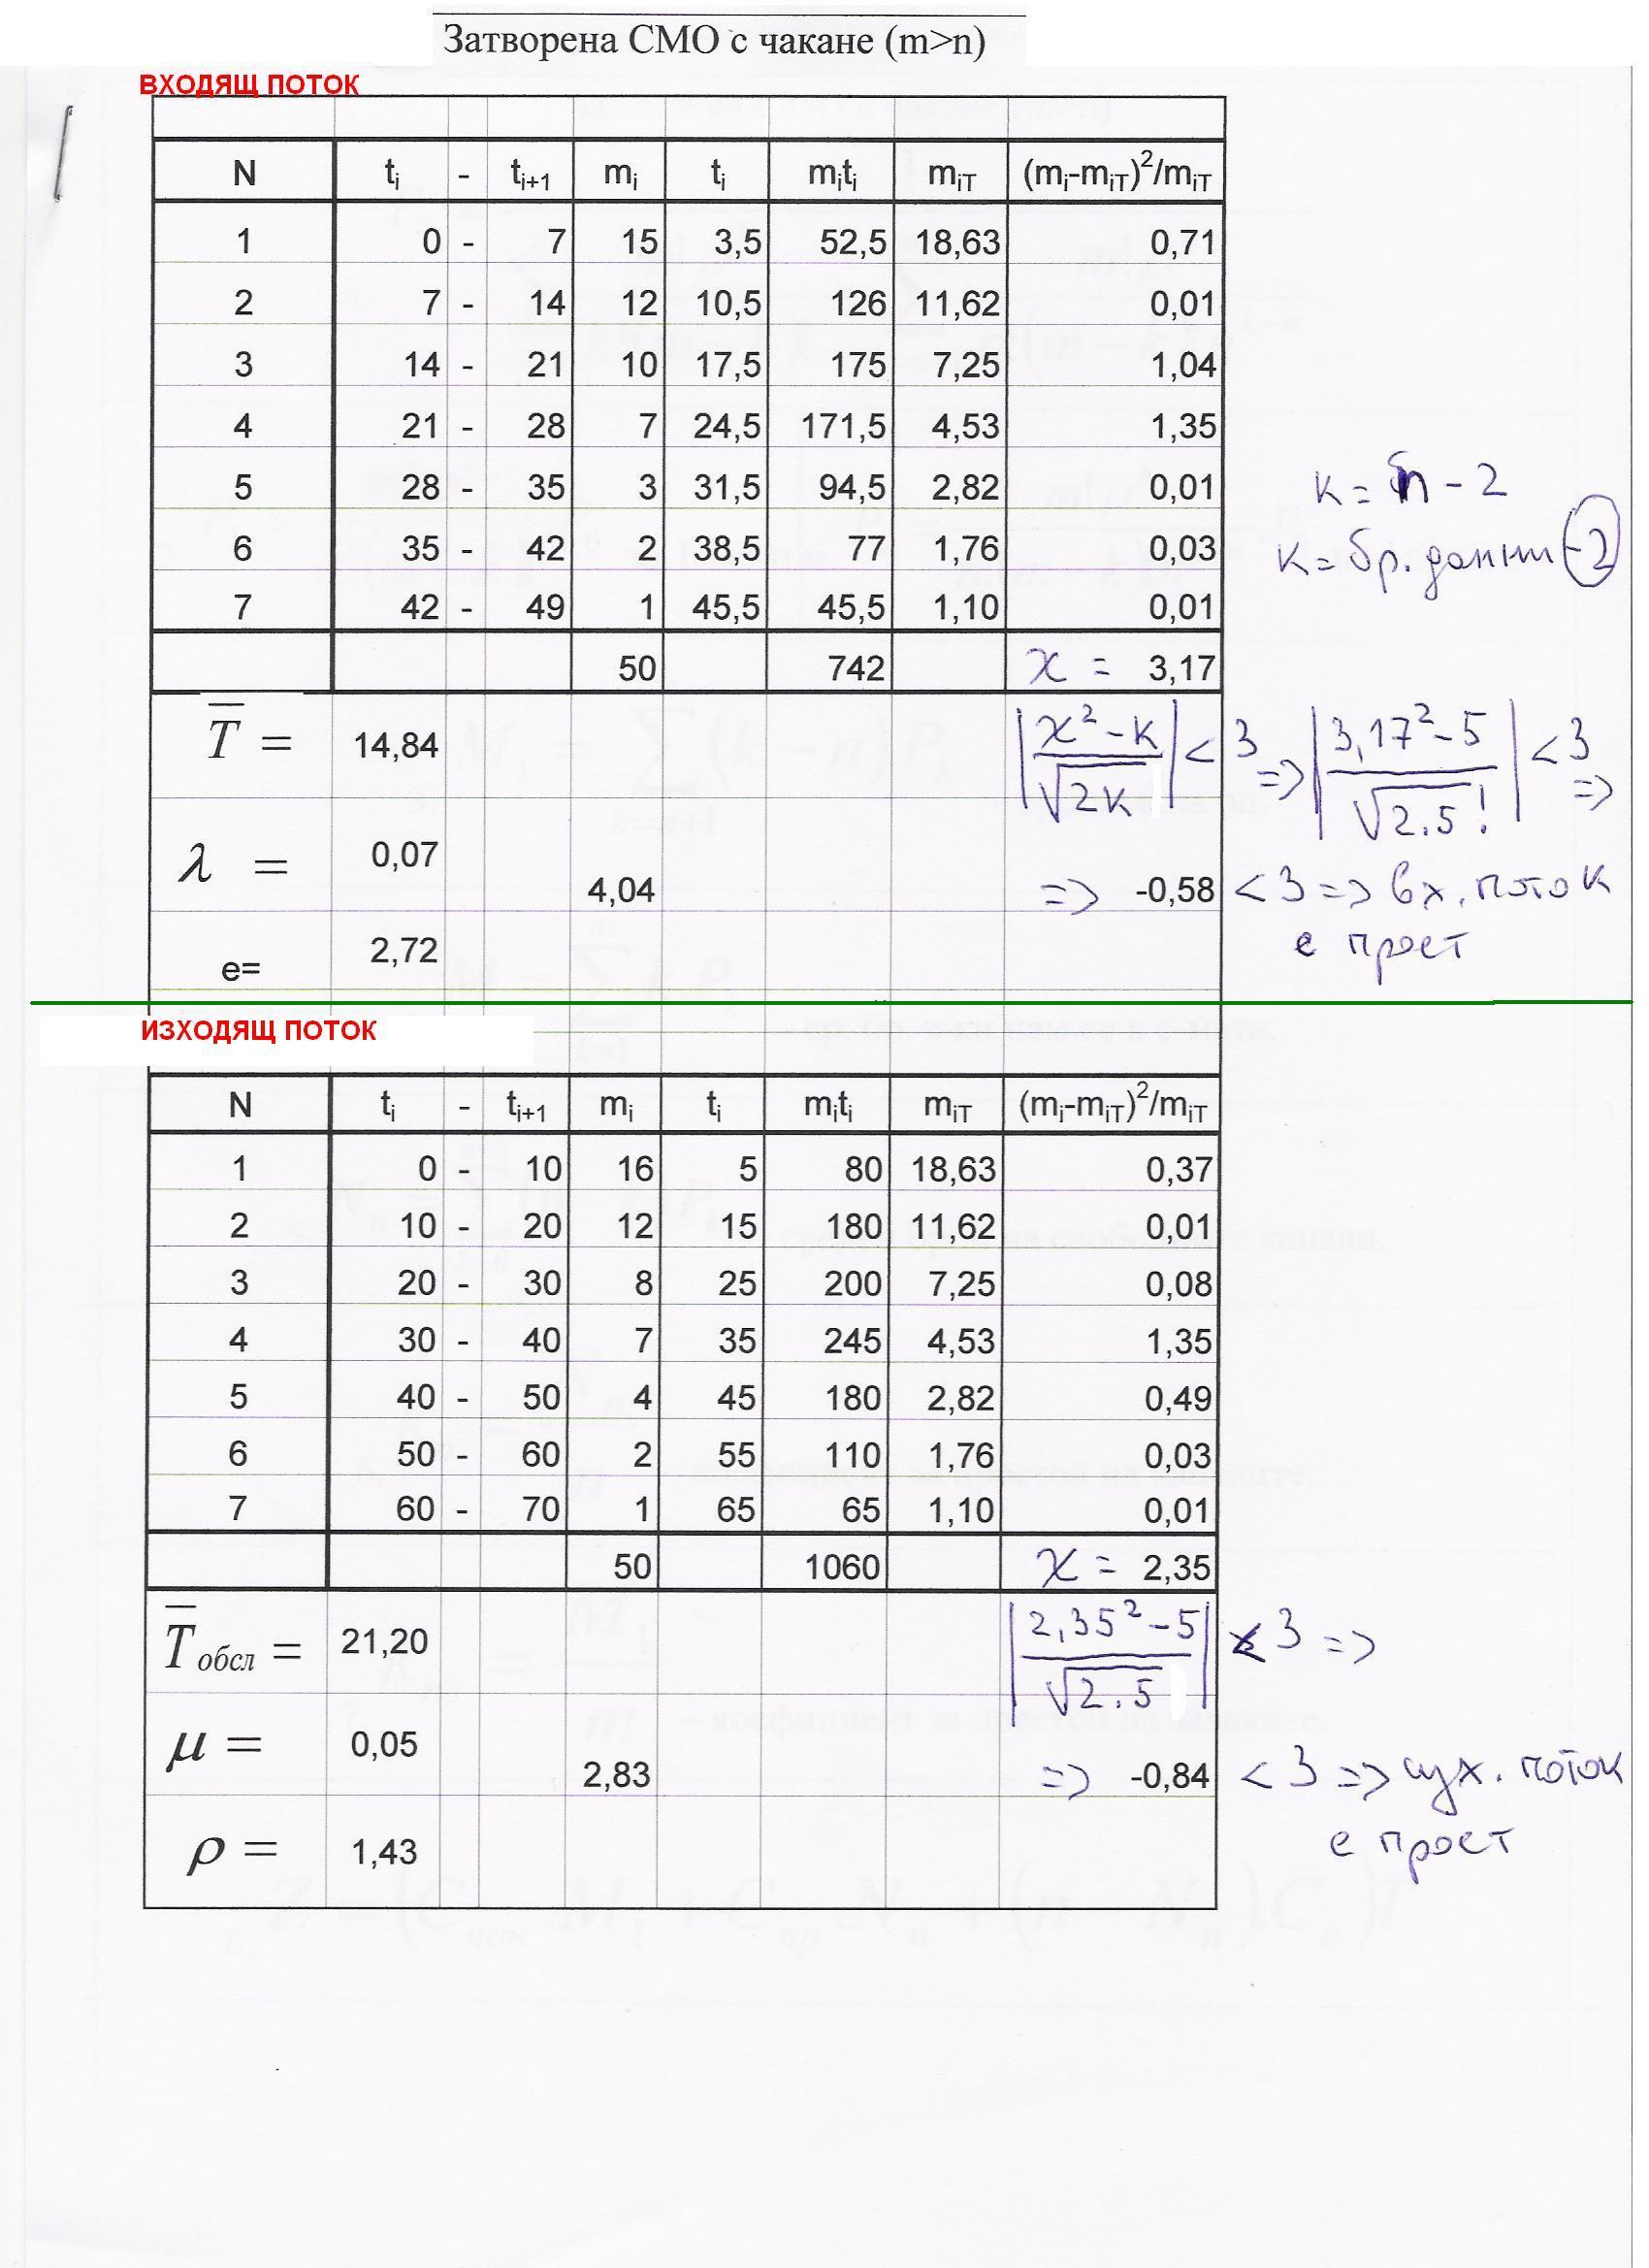 Затворена СМО с чакане (m>n)
ВХОДЯЩ ПОТОК
N ti - ti+1 mi ti miti miT (mi-miT)²/miT
1 0 - 7 15 3,5 52,5 18,63 0,71
2 7 - 14 12 10,5 126 11,62 0,01
3 14 - 21 10 17,5 175 7,25 1,04
4 21 - 28 7 24,5 171,5 4,53 1,35
5 28 - 35 3 31,5 94,5 2,82 0,01
к = n - 2
6 35 - 42 2 38,5 77 1,76 0,03
к = бр. данни - 2
7 42 - 49 1 45,5 45,5 1,10 0,01
50 742 χ = 3,17
T̅ = 14,84
|χ² - к / √2к| < 3 => |3,17² - 5 / √2.5!| < 3 =>
λ = 0,07
4,04 => -0,58 < 3 => вх. поток
е прост
e= 2,72
ИЗХОДЯЩ ПОТОК
N ti - ti+1 mi ti miti miT (mi-miT)²/miT
1 0 - 10 16 5 80 18,63 0,37
2 10 - 20 12 15 180 11,62 0,01
3 20 - 30 8 25 200 7,25 0,08
4 30 - 40 7 35 245 4,53 1,35
5 40 - 50 4 45 180 2,82 0,49
6 50 - 60 2 55 110 1,76 0,03
7 60 - 70 1 65 65 1,10 0,01
50 1060 χ = 2,35
T̅обсл = 21,20
|2,35² - 5 / √2.5| < 3 =>
μ = 0,05
2,83 => -0,84 < 3 => изх. поток
е прост
ρ = 1,43